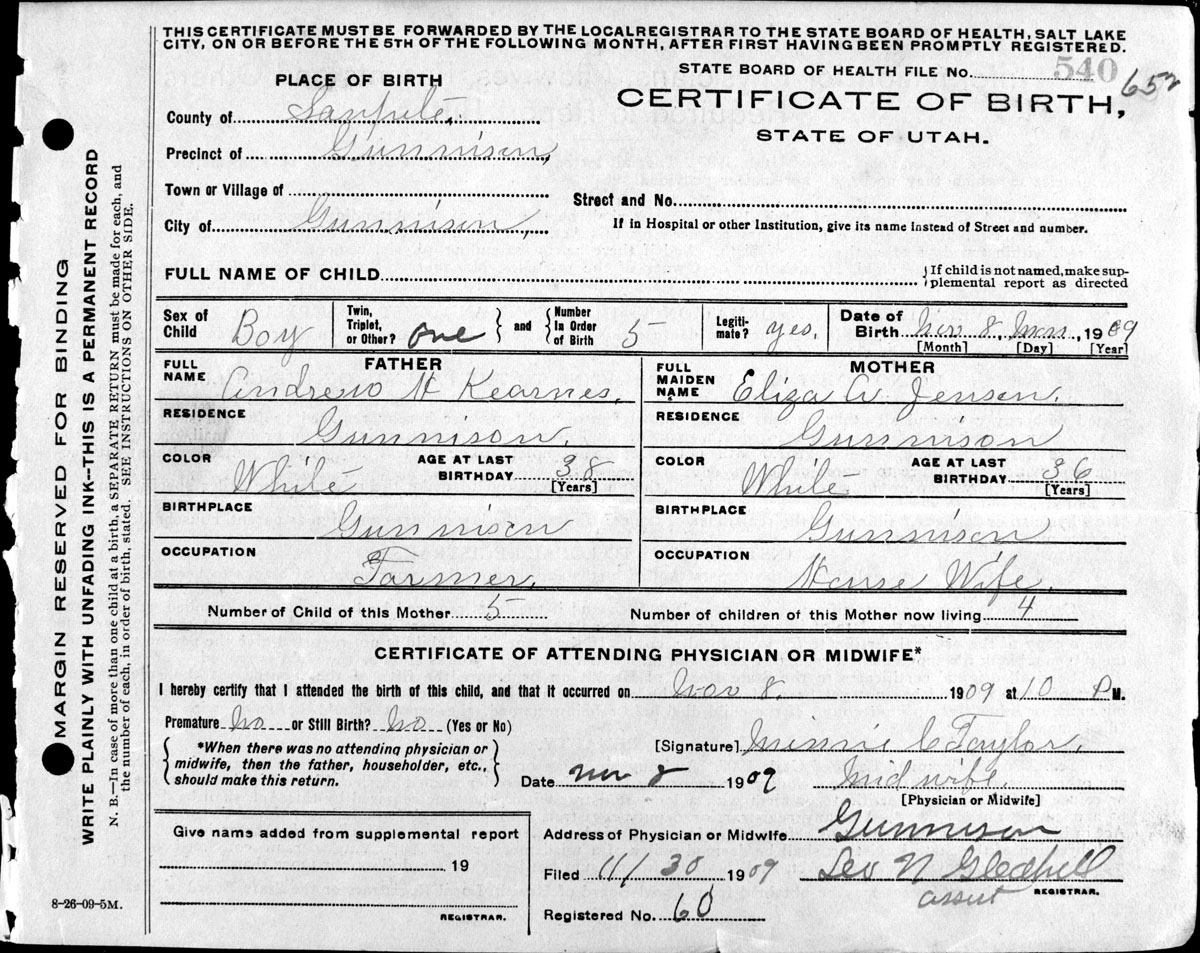 THIS CERTIFICATE MUST BE FORWARDED BY THE LOCALREGISTRAR TO THE STATE BOARD OF HEALTH, SALT LAKE
CITY, ON OR BEFORE THE 5TH OF THE FOLLOWING MONTH, AFTER FIRST HAVING BEEN PROMPTLY REGISTERED.
PLACE OF BIRTH
STATE BOARD OF HEALTH FILE No. 540 652
CERTIFICATE OF BIRTH,
STATE OF UTAH.
County of Sanpete,
Precinct of Gunnison,
Town or Village of
City of Gunnison,
Street and No.
If in Hospital or other Institution, give its name instead of Street and number.
FULL NAME OF CHILD
If child is not named, make sup-
plemental report as directed
Sex of Child Boy Twin, Triplet, or Other? One and Number In Order of Birth 5 Legiti-mate? yes. Date of Birth Nov 8, Mon 1909
[Month] [Day] [Year]
FATHER
FULL NAME Andrew H Kearnes.
RESIDENCE
Gunnison.
COLOR White AGE AT LAST BIRTHDAY 38
[Years]
BIRTHPLACE
Gunnison
OCCUPATION
Farmer.
MOTHER
FULL MAIDEN NAME Eliza A. Jensen.
RESIDENCE
Gunnison
COLOR White AGE AT LAST BIRTHDAY 36
[Years]
BIRTHPLACE
Gunnison
OCCUPATION
House Wife.
Number of Child of this Mother 5 Number of children of this Mother now living 4
CERTIFICATE OF ATTENDING PHYSICIAN OR MIDWIFE*
I hereby certify that I attended the birth of this child, and that it occurred on Nov 8. 1909 at 10 P M.
Premature No or Still Birth? No (Yes or No)
*When there was no attending physician or
midwife, then the father, householder, etc.,
should make this return.
[Signature] Minnie C Taylor.
Date Nov 8 1909 Midwife.
[Physician or Midwife]
Give name added from supplemental report
19
REGISTRAR.
Address of Physician or Midwife Gunnison
Filed 11/30 1909 Leo N Gledhill
REGISTRAR.
assist
Registered No. 60
8-26-09-5M.
MARGIN RESERVED FOR BINDING
WRITE PLAINLY WITH UNFADING INK--THIS IS A PERMANENT RECORD
N. B.—In case of more than one child at a birth, a SEPARATE RETURN must be made for each, and
the number of each, in order of birth, stated. SEE INSTRUCTIONS ON OTHER SIDE.